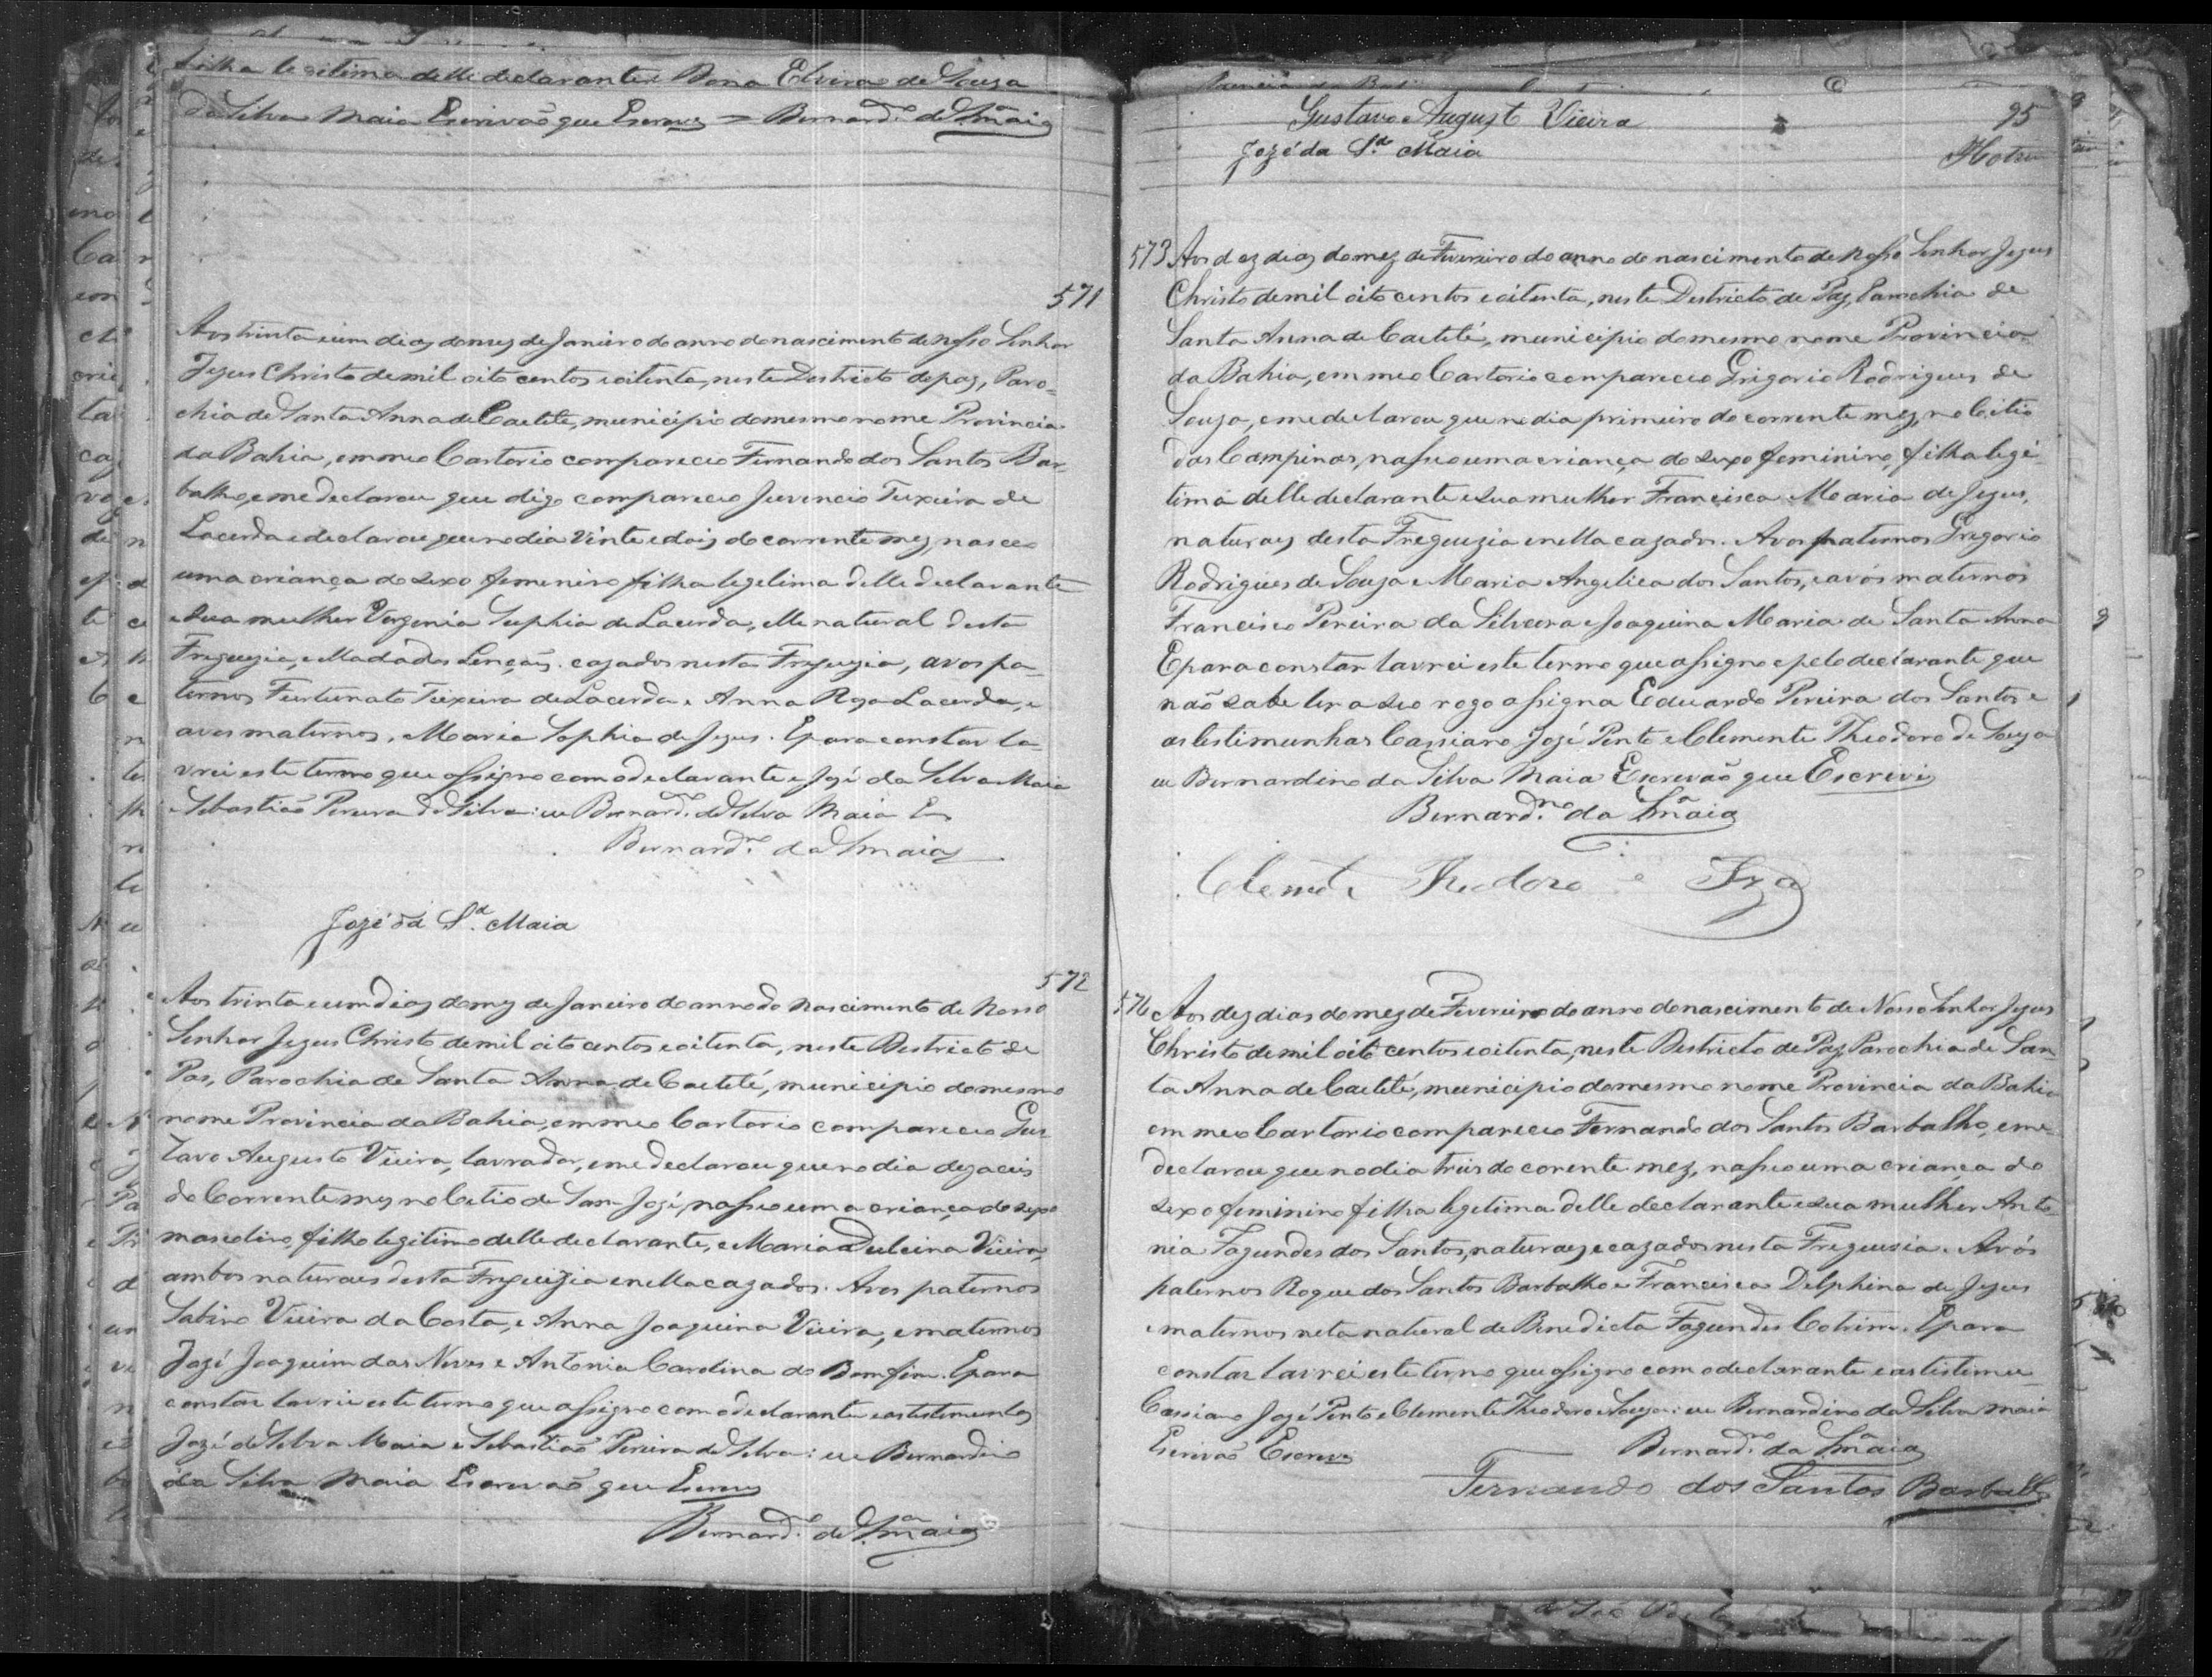 filha legitima delle declarante e Dona Elvira de Souza
da Silva Maia Escrivão que Escrevy = Bernard.º da S.ª Maia
571
Aos trinta e um dias do mez de Janeiro do anno do nascimento de nosso Senhor
Jezus Christo de mil oito centos e oitenta, neste Destricto de paz, Paro-
chia de Santa Anna de Caetete, municipio do mesmo nome Provincia
da Bahia, em meo Cartorio compareceo Fernando dos Santos Bar-
balho, e me declarou que digo compareceo Juvencio Teixeira de
Lacerda e declarou que no dia Vinte e dois do corrente mez nasceo
uma criança do sexo femenino filha legetima delle declarante
e sua mulher Vergenia Suphia de Lacerda, elle natural desta
Freguezia, e ella da dos Lençóes. cazados nesta Freguezia, avos pa-
ternos Furtunato Teixeira de Lacerda e Anna Roza Lacerda, e
avos maternos, Maria Sophia de Jezus. E para constar la-
vrei este termo que assigno com o declarante e Jozé da Silva Maia
e Sebastião Pereira da Silva: eu Bernard.º da Silva Maia
Bernard.º da S Maia
Jozé da S.ª Maia
572
Aos trinta e um dias do mez de Janeiro do anno do nascimento de nosso
Senhor Jezus Christo de mil oito centos e oitenta, neste Destricto de
Pas, Parochia de Santa Anna de Caeteté, municipio do mesmo
nome Provincia da Bahia, em meo Cartorio compareceo Gus-
tavo Augusto Vieira, lavrador, e me declarou que no dia dezaceis
do Corrente mez no Citio de San Jozé, nasseo uma criança do sexo
masculino, filho legitimo delle declarante, e Maria Dulcina Vieira,
ambos naturaes desta Freguezia e nella cazados. Avos paternos
Sabino Vieira da Costa, e Anna Joaquina Vieira, e maternos
Jozé Joaquim das Neves e Antonia Carolina do Bomfim. E para
constar lavrei este termo que assigno com o declarante e as testemunhas
Jozé da Silva Maia e Sebastião Pereira da Silva: eu Bernardino
da Silva Maia Escrevão que Escrevy
Bernard.º da S.ª Maia
Gustavo August Vieira
95
Jozé da S.ª Maia
573 Aos dez dias do mez de Fevereiro do anno do nascimento de Nosso Senhor Jezus
Christo de mil oito centos e oitenta, neste Destricto de Paz, Parochia de
Santa Anna de Caeteté, municipio do mesmo nome Provincia
da Bahia, em meo Cartorio compareceo Grigorio Rodrigues de
Souza, e me declarou que no dia primeiro do corrente mez, no Citio
das Campinas, nasseo uma criança do sexo feminino, filha legi-
tima delle declarante e sua mulher Francisca Maria de Jezus,
naturaes desta Freguezia e nella cazados. Avos paternos Gregorio
Rodrigues de Souza e Maria Angelica dos Santos, e avós maternos
Francisco Pereira da Silveira e Joaquina Maria de Santa Anna
E para constar lavrei este termo que assigno e pelo declarante que
não sabe ler a seo rogo assigna Eduardo Pereira dos Santos e
as testimunhas Cassiano Jozé Pinto e Clemente Theodoro de Souza
eu Bernardino da Silva Maia Escrevão que Escrevi
Bernard.no da S.ª Maia
Clemete Theodoro
Aos dez dias do mez de Fevereiro do anno do nascimento de Nosso Senhor Jezus
Christo de mil oito centos e oitenta, neste Destricto de Paz, Parochia de San
ta Anna de Caeteté, municipio do mesmo nome Provincia da Bahia
em meo Cartorio compareceo Fernando dos Santos Barbalho, e me
declarou que no dia treis do corente mez, nasseo uma criança do
sexo feminino filha legetima delle declarante e sua mulher Anto-
nia Fagundes dos Santos, naturaes e cazados nesta Freguezia. Avós
paternos Roque dos Santos Barbalho e Francisca Delphina de Jezus
e maternos neta natural de Benedicta Fagundes Cotrim. E para
constar lavrei este termo que assigno com o declarante e as testemu-
Cassiano Jozé Pinto e Clemente Theodoro e Souza: eu Bernardino da Silva Maia
Escrivão Escrevy Bernard.º da S.ª Maia
Fernando dos Santos Barbalho